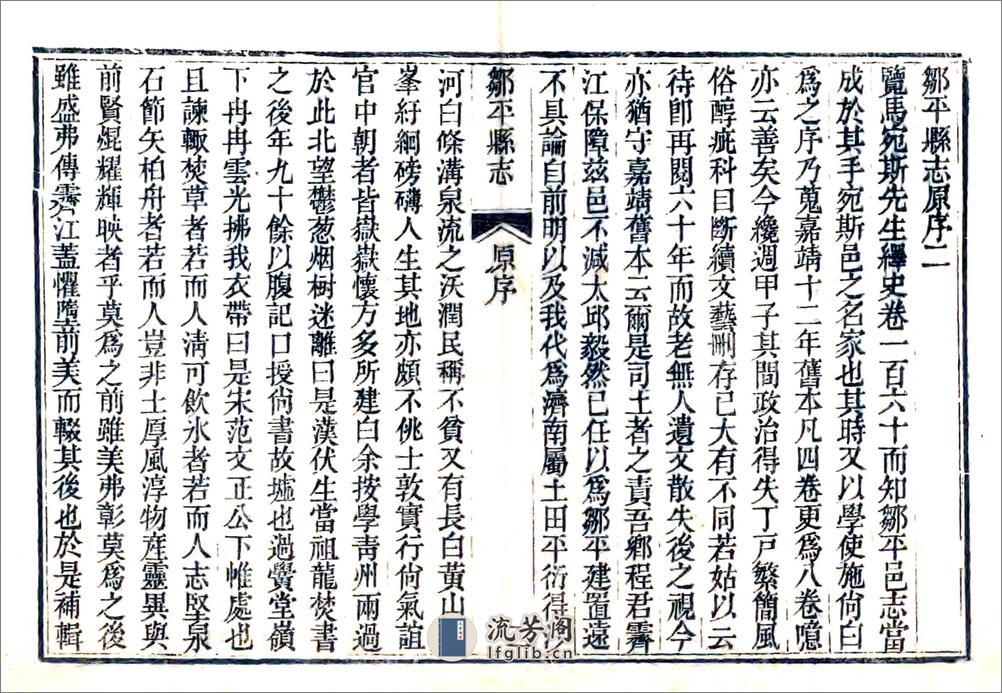 鄒平縣志原序二
覽馬宛斯先生繹史卷一百六十而知鄒平邑志當
成於其手宛斯邑之名家也其時又以學使施尚白
爲之序乃蒐嘉靖十二年舊本凡四卷更爲八卷噫
亦云善矣今纔週甲子其間政治得失丁戸繁簡風
俗醇疵科目斷續文藝刪存已大有不同若姑以云
待卽再閱六十年而故老無人遺文散失後之視今
亦猶守嘉靖舊本云爾是司土者之責吾鄉程君霽
江保障兹邑不減太邱毅然已任以爲鄒平建置遠
不具論自前明以及我代爲濟南屬土田平衍得
鄒平縣志
原序
河白條溝泉流之沃潤民稱不貧又有長白黃山
峯紆綱磅礴人生其地亦頗不佻士敦實行尙氣誼
官中朝者皆嶽嶽懷方多所建白余按學靑州兩過
於此北望鬱葱烟樹迷離曰是漢伏生當祖龍焚書
之後年九十餘以腹記口授尙書故墟也過黌堂嶺
下冉冉雲光拂我衣帶曰是宋范文正公下帷處也
且諫輙焚草者若而人淸可飲氷者若而人志堅泉
石節矢柏舟者若而人豈非土厚風淳物産靈異與
前賢焜耀輝映者乎莫爲之前雖美弗彰莫爲之後
雖盛弗傳霽江蓋懼隳前美而輟其後也於是補輯
流芳阁
lfglib.cn